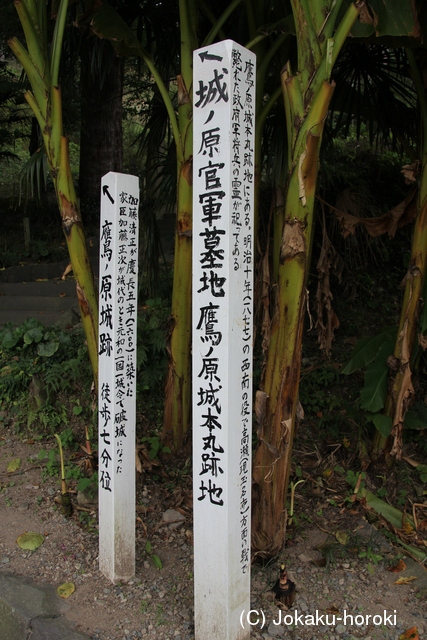 鷹ノ原城本丸跡地にある。明治十年(一八七七)の西南の役で高瀬(現玉名市)方面の戦で
斃れた政府軍将兵の霊が祀ってある
↖城ノ原官軍墓地 鷹ノ原城本丸跡地
加藤清正が慶長五年(一六〇〇)に築いた
家臣加藤正次が城代のとき元和の一国一城令で破城になった
↖鷹ノ原城跡 徒歩七分位
(C) Jokaku-horoki